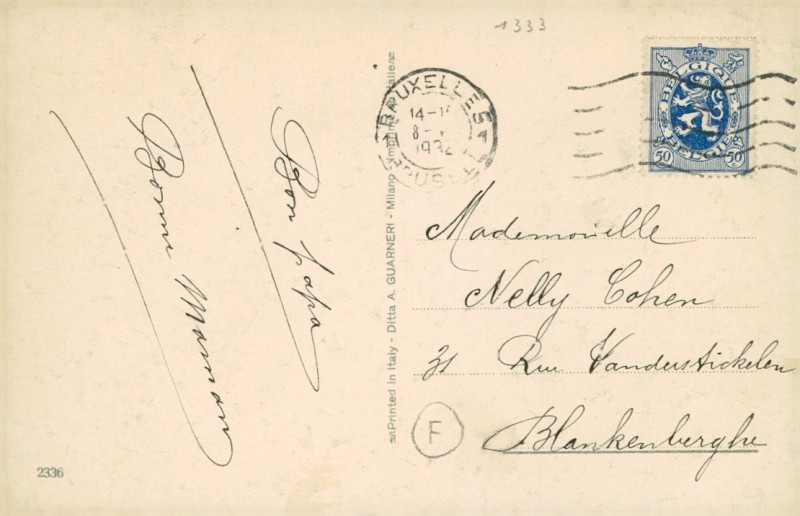 1333
Bon papa
Bonne Maman
BRUXELLES
14-1
8-V
1932
BRUSSEL
BELGIQUE
BELGIË
50 50
Printed in Italy - Ditta A. GUARNERI - Milano
Mademoiselle
Nelly Cohen
31 Rue Vanderstickelen
Blankenberghe
F
2336